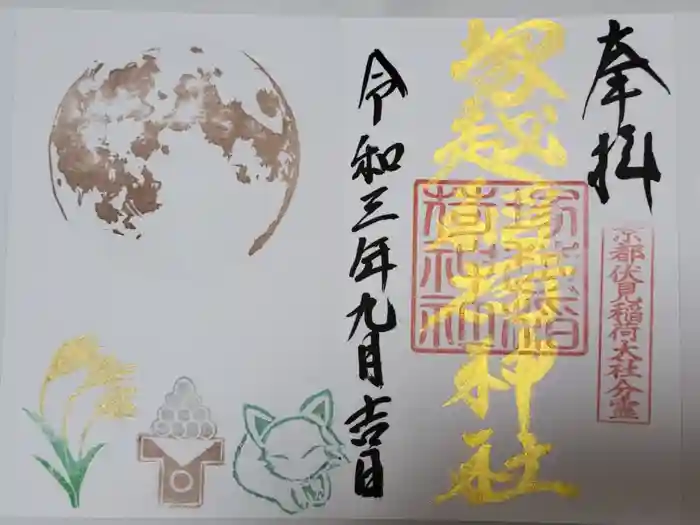 奉拝
京都伏見稲荷大社分霊
塚越稲荷神社
令和三年九月吉日